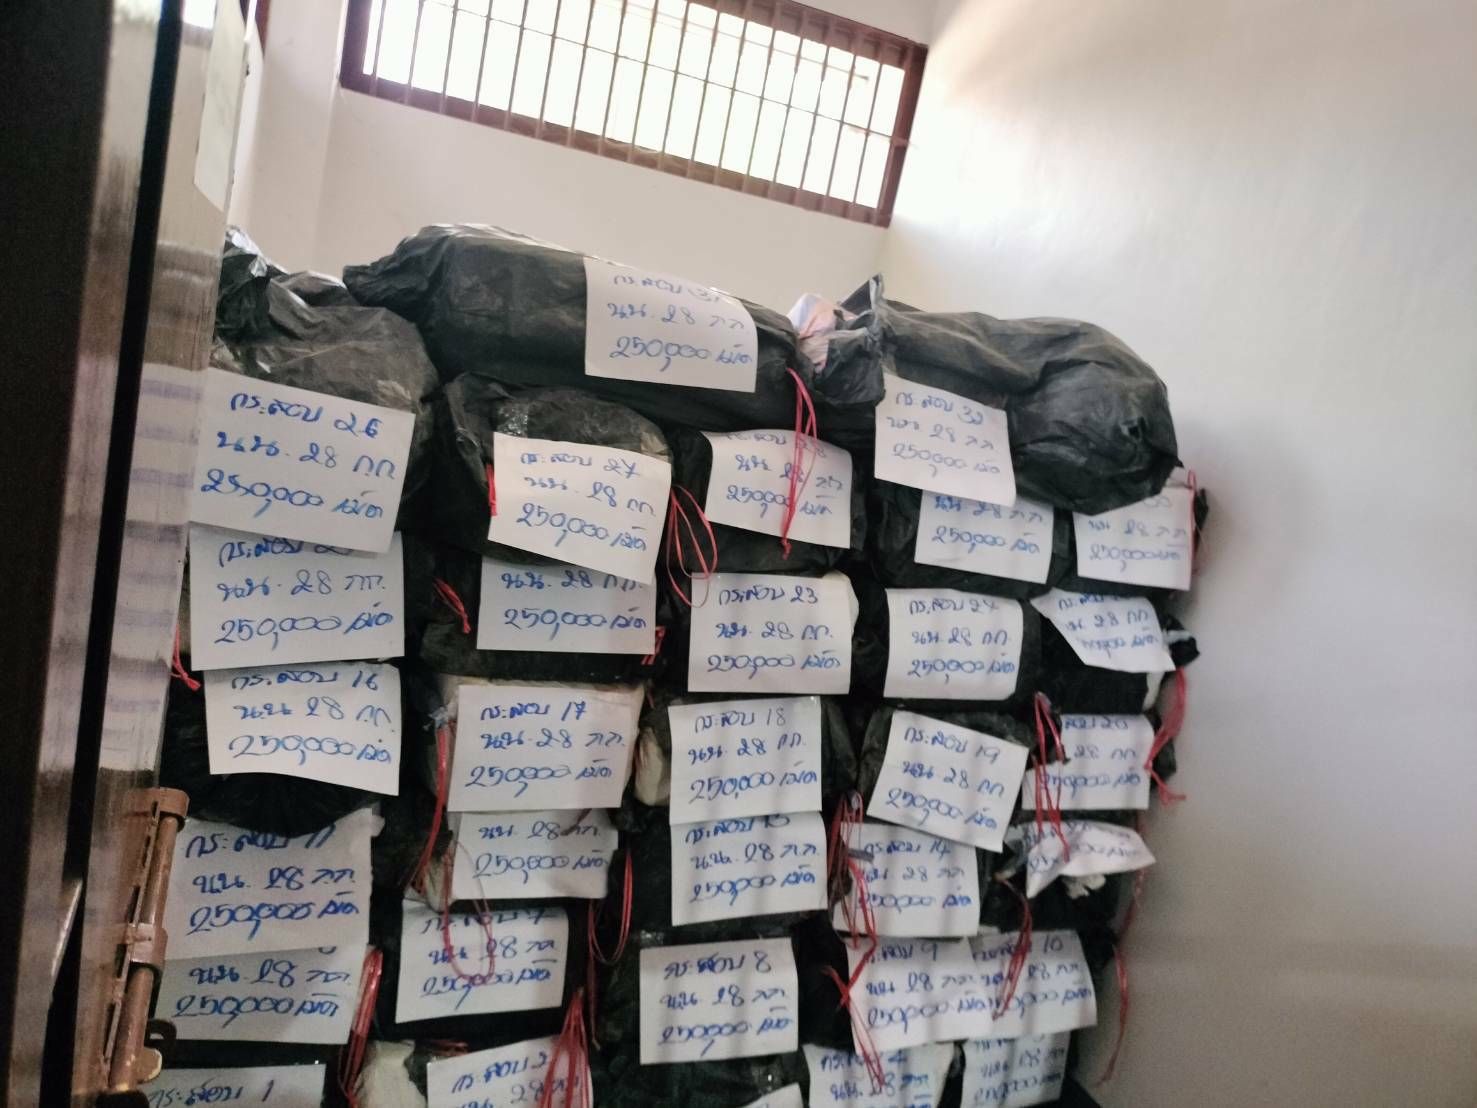 กระสอบ 31
นน. 28 กก.
250,000 เม็ด
กระสอบ 32
นน. 28 กก.
250,000 เม็ด
กระสอบ 26
นน. 28 กก.
250,000 เม็ด
กระสอบ 27
นน. 28 กก.
250,000 เม็ด
กระสอบ 28
นน. 28 กก.
250,000 เม็ด
นน. 28 กก.
250,000 เม็ด
นน. 28 กก.
250,000 เม็ด
กระสอบ
นน. 28 กก.
250,000 เม็ด
นน. 28 กก.
250,000 เม็ด
กระสอบ 23
นน. 28 กก.
250,000 เม็ด
กระสอบ 24
นน. 28 กก.
250,000 เม็ด
นน. 28 กก.
250,000 เม็ด
กระสอบ 16
นน. 28 กก.
250,000 เม็ด
กระสอบ 17
นน. 28 กก.
250,000 เม็ด
กระสอบ 18
นน. 28 กก.
250,000 เม็ด
กระสอบ 19
นน. 28 กก.
250,000 เม็ด
กระสอบ 20
28 กก.
250,000 เม็ด
กระสอบ 11
นน. 28 กก.
250,000 เม็ด
นน. 28 กก.
250,000 เม็ด
กระสอบ 13
นน. 28 กก.
250,000 เม็ด
กระสอบ 14
นน. 28 กก.
250,000 เม็ด
นน. 28 กก.
250,000 เม็ด
กระสอบ 7
นน. 28 กก.
250,000 เม็ด
กระสอบ 8
นน. 28 กก.
250,000 เม็ด
กระสอบ 9
นน. 28 กก.
250,000 เม็ด
กระสอบ 10
นน. 28 กก.
250,000 เม็ด
กระสอบ 1
กระสอบ 2
นน. 28 กก.
กระสอบ 4
นน. 28 กก.
250,000 เม็ด
นน. 28 กก.
250,000 เม็ด